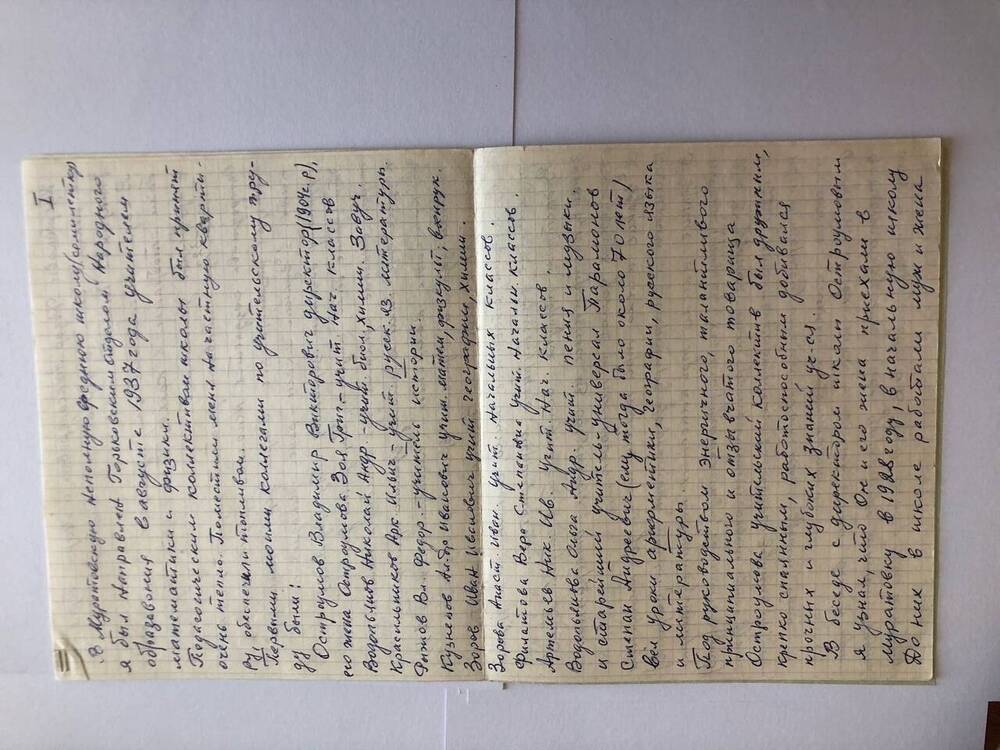 I
В Муратовскую Неполную среднюю школу (семилетку)
я был направлен Горьковским отделом Народного
образования в августе 1937 года учителем
математики и физики.
Педагогическим коллективом школы был принят
очень тепло. Поместили меня на частную кварти-
ру, обеспечили топливом.
Первыми моими коллегами по учительскому тру-
ду были:
Остроумов Владимир Викторович директор (1904 г.р),
его жена Остроумова Зоя Гр – учит. Нач. классов
Водопьянов Николай Андр. учит. биол, химии, Завуч.
Красильников Арк. Ильич – учит. русск. яз. литературы
Рыжов Вл. Федор. – учитель истории.
Кузнецов Иванович учит. матем, физкульт, военрук.
Зоров Иван Иванович учит. географии, химии.
Зорова Анаст. Иван. учит. начальных классов.
Филатова Вера Степановна учит. Начальн. классов.
Артемьев Ник. Ив. Учит. Нач. классов
Водопьянова Ольга Андр. учит. пения и музыки.
и старейший учитель-универсал Парамонов
Степан Андреевич (ему тогда было около 70 лет)
вел уроки арифметики, географии, русского языка
и литературы.
Под руководством энергичного, талантливого
принципиального и отзывчатого товарища
Остроумова учительский коллектив был дружным,
крепко спаянным, работоспособным добивался
прочных и глубоких знаний уч-ся.
В беседе с директором школы Остроумовым
я узнал, что Он и его жена приехали в
Муратовку в 1928 году, в начальную школу
До них в школе работали муж и жена